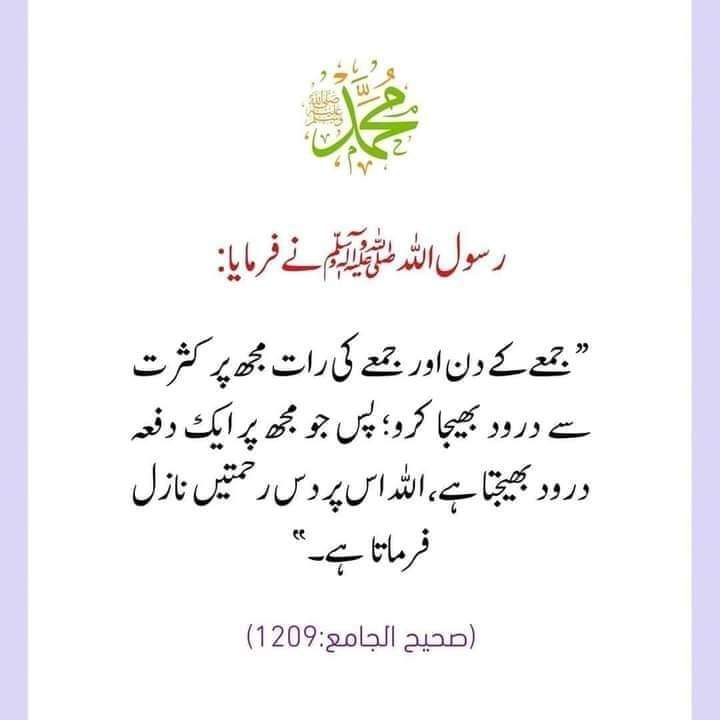 محمد
صلى الله عليه وسلم
رسول اللہ ﷺ نے فرمایا:
”جمعے کے دن اور جمعے کی رات مجھ پر کثرت
سے درود بھیجا کرو؛ پس جو مجھ پر ایک دفعہ
درود بھیجتا ہے، اللہ اس پر دس رحمتیں نازل
فرماتا ہے۔“
(صحيح الجامع:1209)